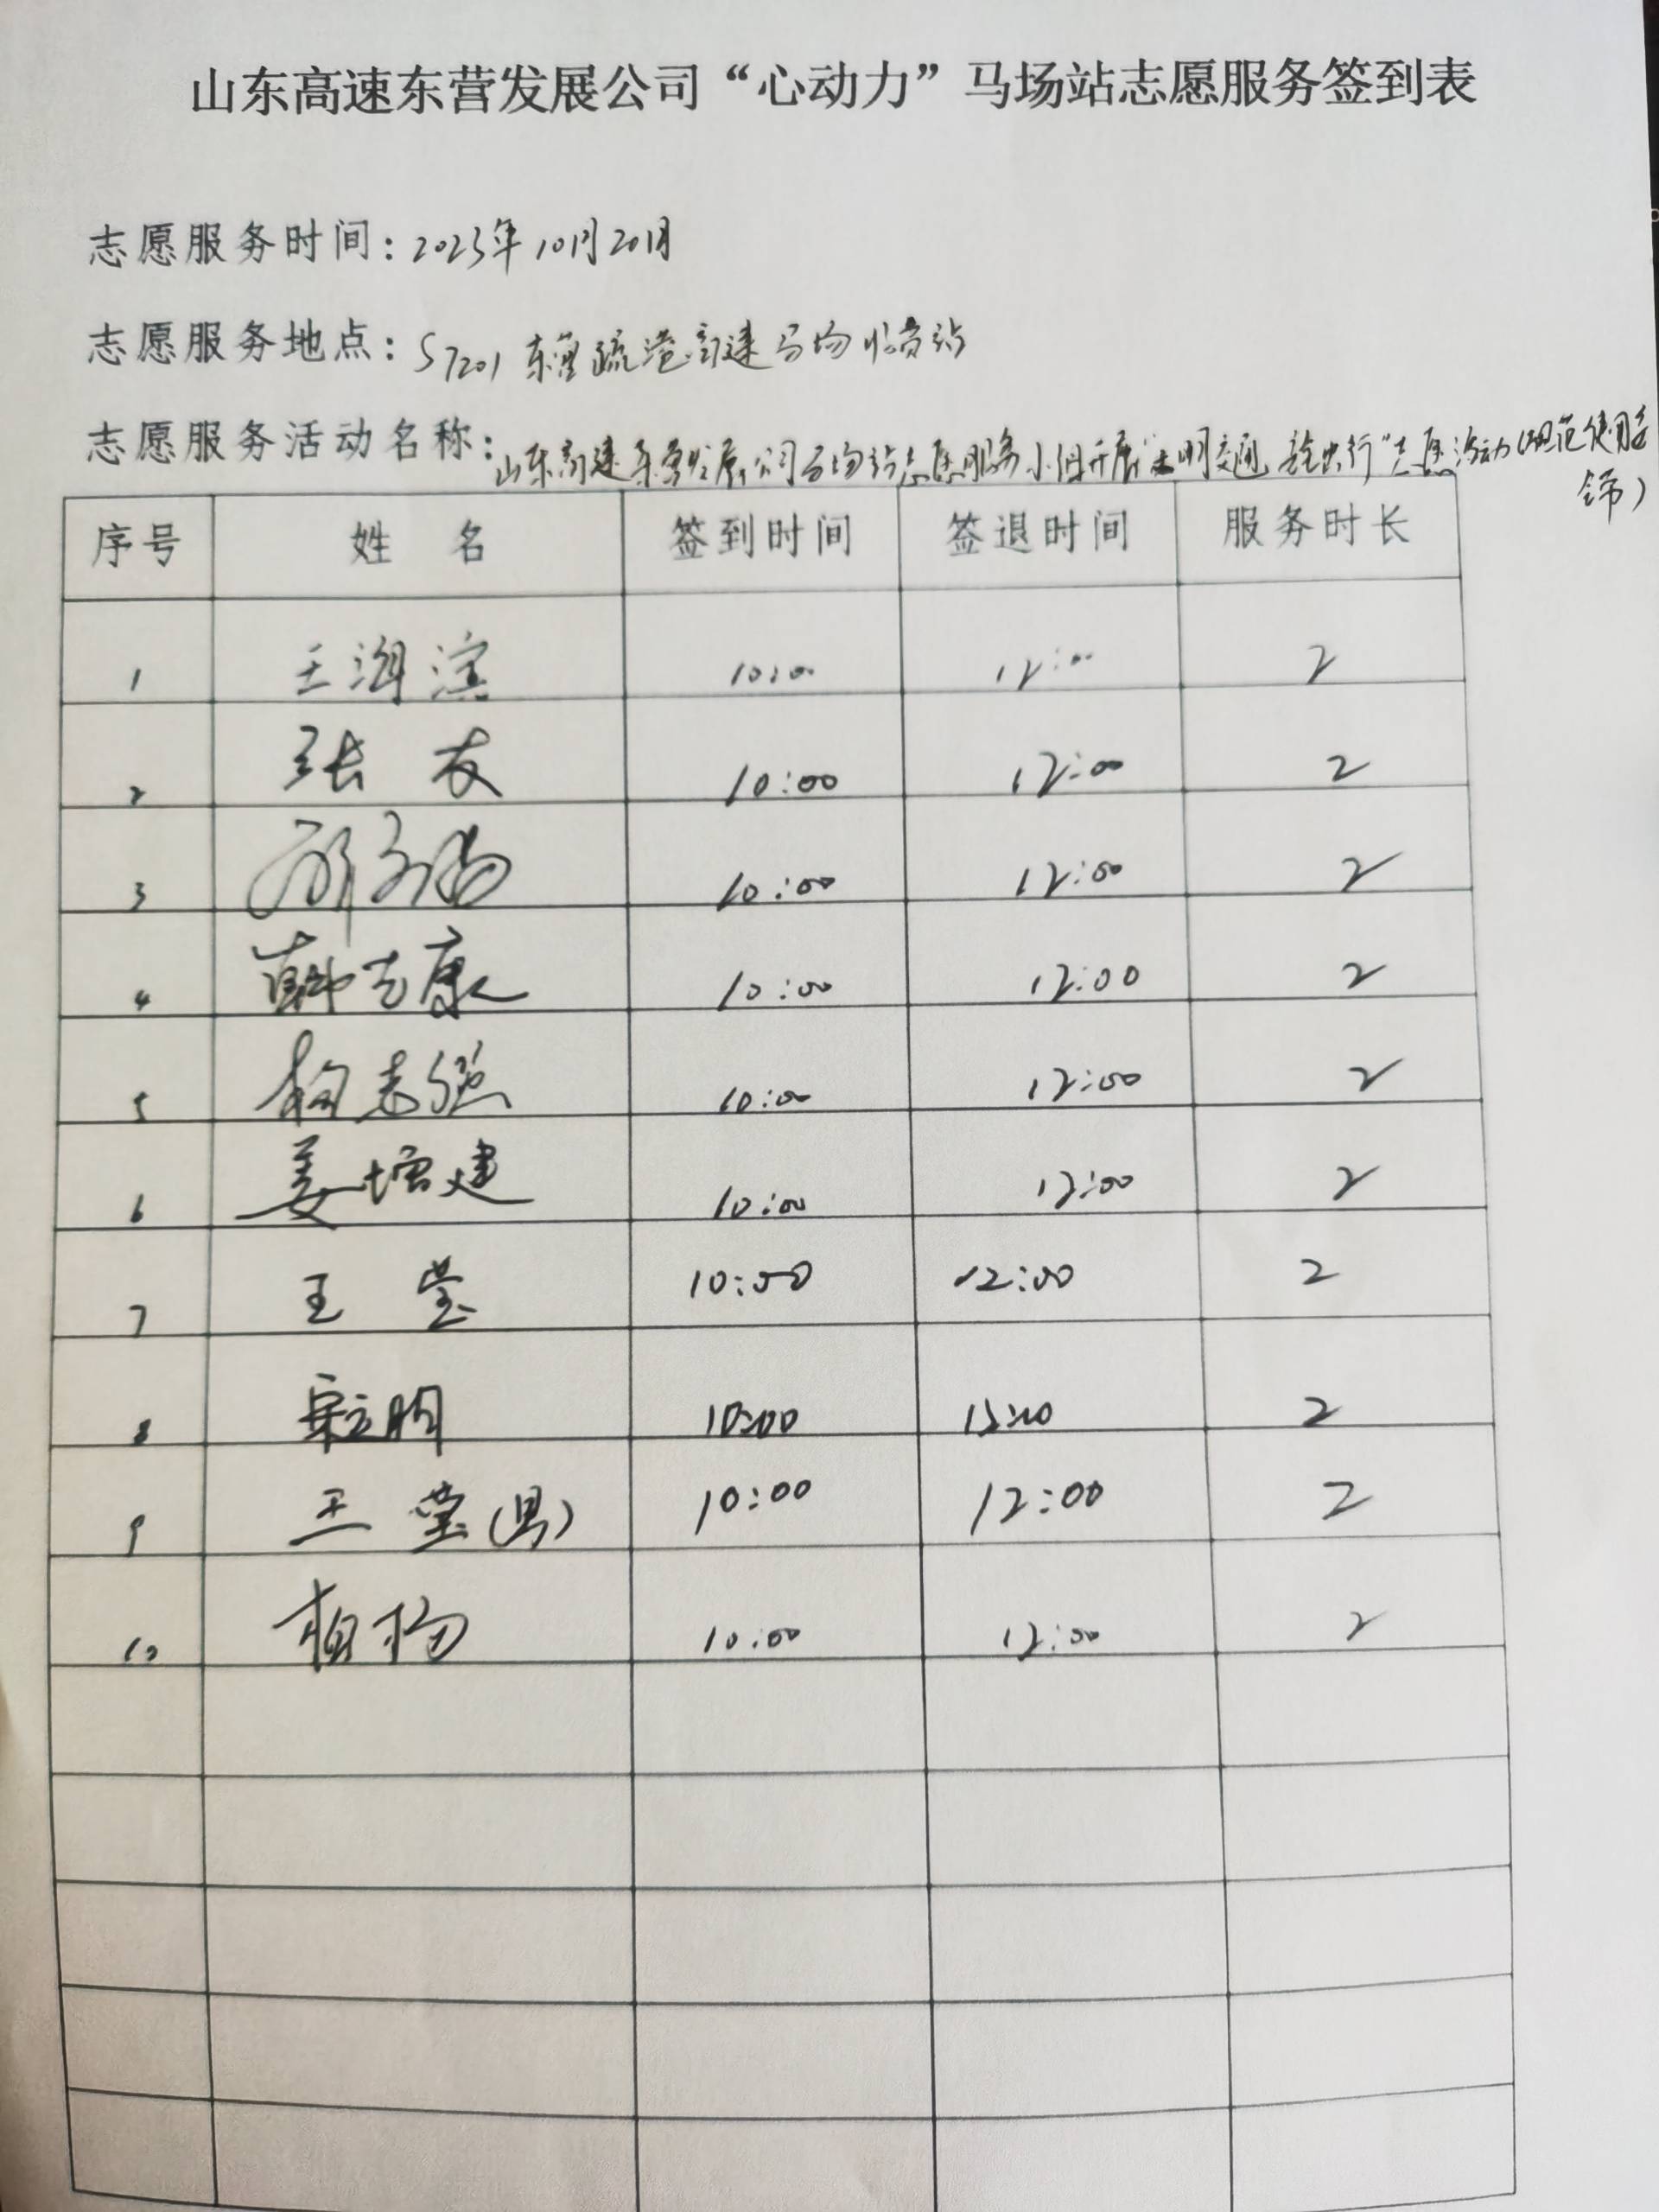 山东高速东营发展公司“心动力”马场站志愿服务签到表
志愿服务时间：2023年10月20日
志愿服务地点：S7201 东营疏港高速马场收费站
志愿服务活动名称：山东高速东营发展公司马场站志愿服务小组开展“文明交通 安全出行”志愿活动（规范使用
饰）
序号 姓 名 签到时间 签退时间 服务时长
1 王海滨 10:00 12:00 2
2 张 友 10:00 12:00 2
3 10:00 12:00 2
4 韩志康 10:00 12:00 2
5 杨志强 10:00 12:00 2
6 姜增建 10:00 12:00 2
7 王 莹 10:00 12:00 2
8 宋立明 10:00 12:00 2
9 王 莹（男） 10:00 12:00 2
10 10:00 12:00 2